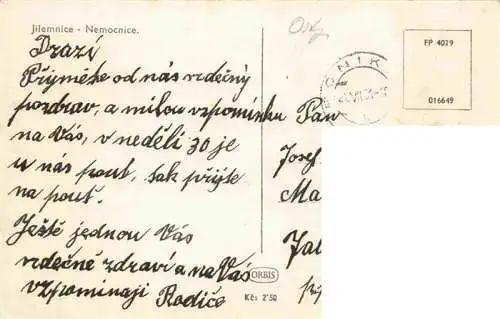 Jilemnice - Nemocnice.
Drazí
Přijměte od nás srdečný
pozdrav, a milou vzpomínku
na Vás, v neděli 30 je
u nás pout, tak přijďte
na pout.
Ještě jednou Vás
srdečně zdraví a na Vás
vzpomínají Rodiče
ORBIS
Kčs 2'50
FP 4029
016649
Pan
Josef
Ma